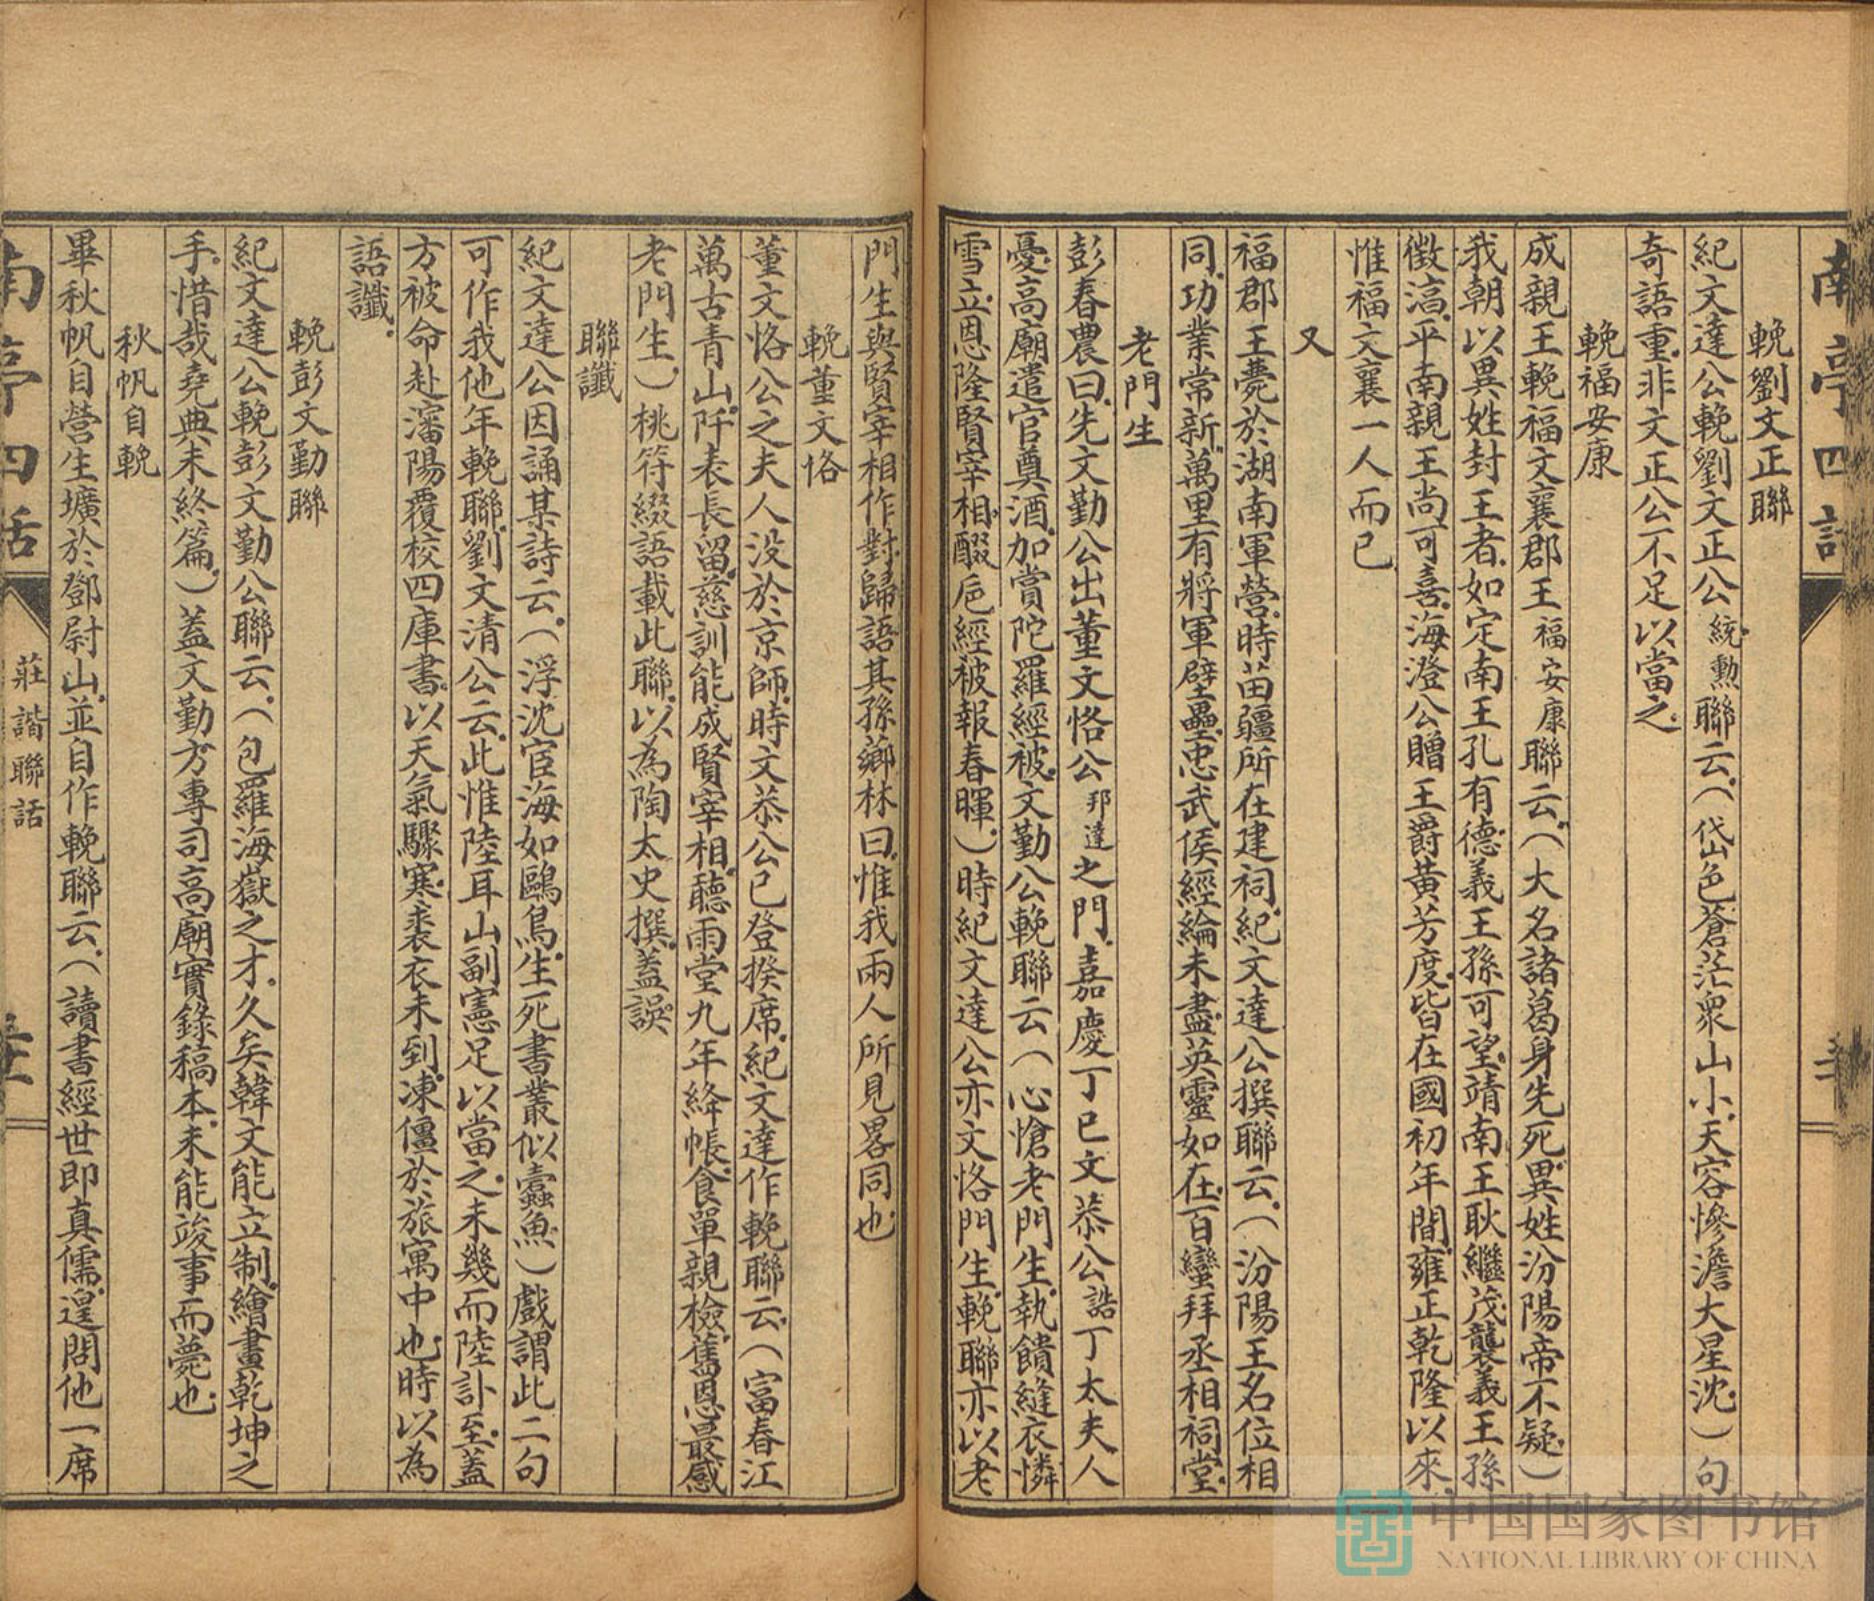 南亭四話
輓劉文正聯
紀文達公輓劉文正公統勲聯云（岱色蒼茫衆山小天容慘澹大星沈）句
奇語重非文正公不足以當之
輓福安康
成親王輓福文襄郡王福安康聯云（大名諸葛身先死異姓汾陽帝不疑）
我朝以異姓封王者如定南王孔有德義王孫可望靖南王耿繼茂襲義王孫
徵淳平南親王尚可喜海澄公贈王爵黃芳度皆在國初年間雍正乾隆以來
惟福文襄一人而已
又
福郡王薨於湖南軍營時苗疆所在建祠紀文達公撰聯云（汾陽王名位相
同功業常新萬里有將軍壁壘忠武侯經綸未盡英靈如在百蠻拜丞相祠堂
老門生
彭春農曰先文勤公出董文恪公邦達之門嘉慶丁巳文恭公誥丁太夫人
憂高廟遣官奠酒加賞陀羅經被文勤公輓聯云（心愴老門生執饋縫衣憐
雪立恩隆賢宰相醊巵經被報春暉）時紀文達公亦文恪門生輓聯亦以老
門生與賢宰相作對歸語其孫薌林曰惟我兩人所見畧同也
輓董文恪
董文恪公之夫人没於京師時文恭公已登揆席紀文達作輓聯云（富春江
萬古青山阡表長留慈訓能成賢宰相聽雨堂九年絳帳食單親檢舊恩最感
老門生）桃符綴語載此聯以為陶太史撰蓋誤
聯讖
紀文達公因誦某詩云（浮沈宦海如鷗鳥生死書叢似蠹魚）戲謂此二句
可作我他年輓聯劉文清公云此惟陸耳山副憲足以當之未幾而陸訃至蓋
方被命赴瀋陽覆校四庫書以天氣驟寒裘衣未到凍僵於旅寓中也時以為
語讖
輓彭文勤聯
紀文達公輓彭文勤公聯云（包羅海嶽之才久矣韓文能立制繪畫乾坤之
手惜哉堯典未終篇）蓋文勤方專司高廟實錄稿本未能竣事而薨也
秋帆自輓
畢秋帆自營生壙於鄧尉山並自作輓聯云（讀書經世即真儒遑問他一席
南亭四話
莊諧聯話
中国国家图书馆
NATIONAL LIBRARY OF CHINA